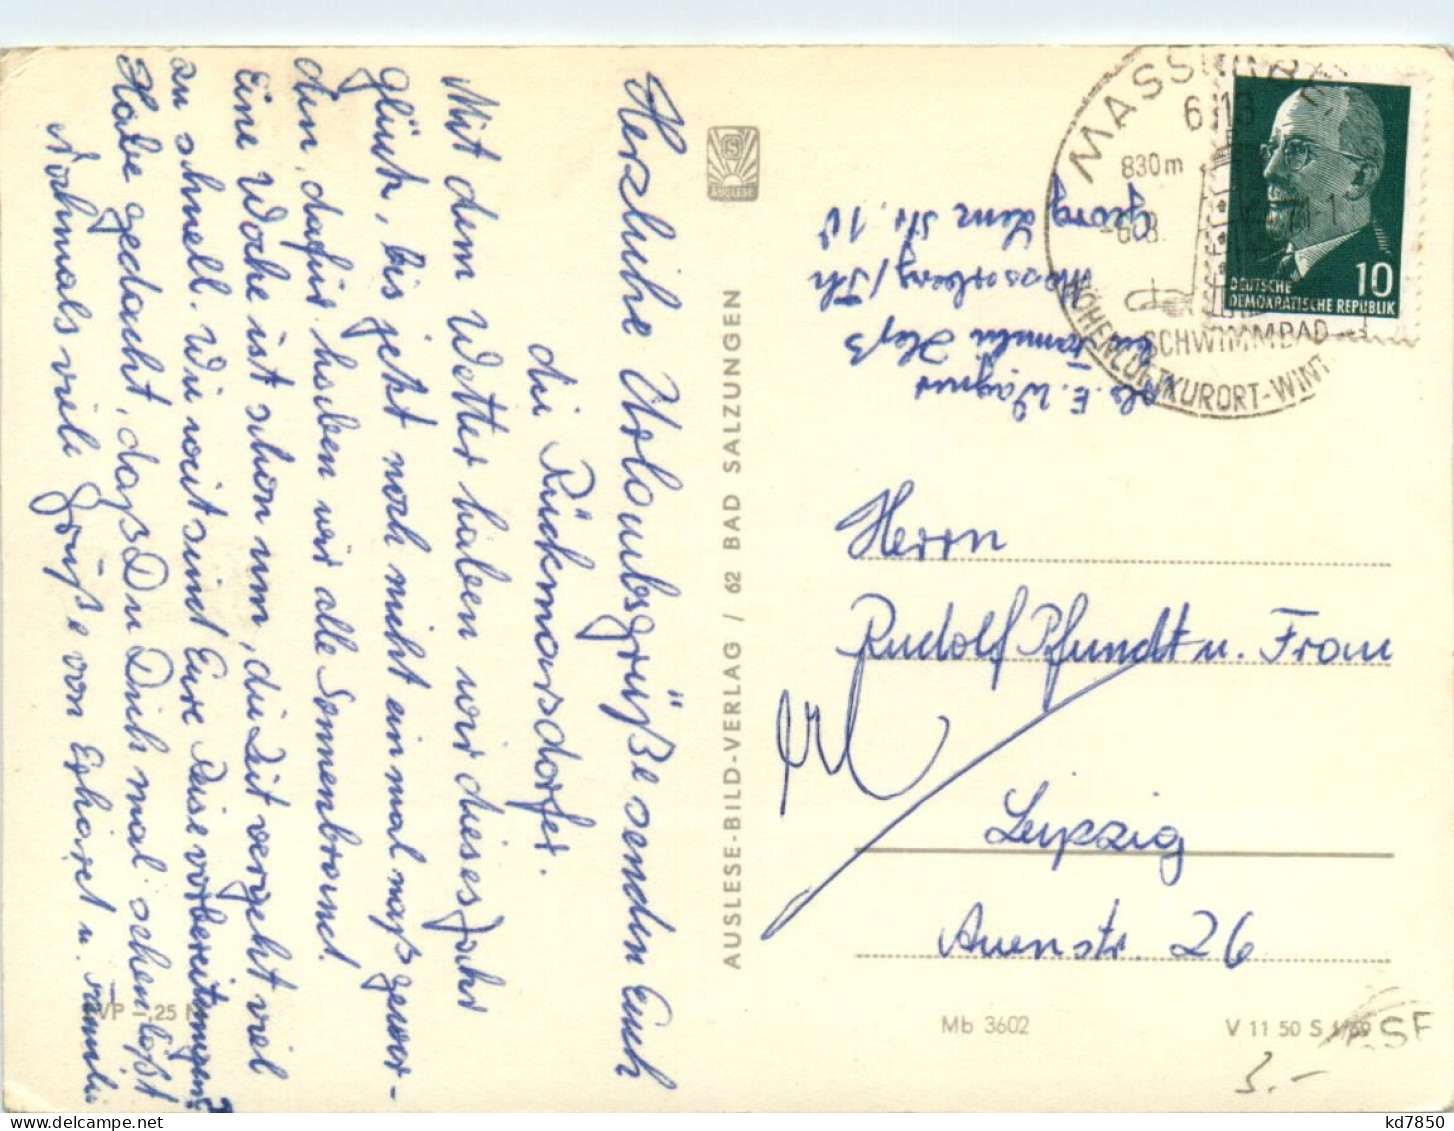 Herzliche Urlaubsgrüße senden Euch
die Rückmarsdorfer.
Mit dem Wetter haben wir dieses Jahr
Glück, bis jetzt noch nicht einmal naß gewor-
den, dafür haben wir alle Sonnenbrand.
Eine Woche ist schon um, die Zeit vergeht viel
zu schnell. Wie weit sind Eure Reisevorbereitungen?
Habe gedacht, daß Du Dich mal sehen läßt
Nochmals viele Grüße von Erhard u. Familie
VP –,25 M
AUSLESE-BILD-VERLAG / 62 BAD SALZUNGEN
AUSLESE
Abs. E. Wagner
bei Familie Heß
Masserberg/Th
Georg Lenz Str. 10
MASSERBERG
6116
830m
-6.8.
71-1
SCHWIMMBAD
HÖHENLUFTKURORT-WINT
10
DEUTSCHE
DEMOKRATISCHE REPUBLIK
Herrn
Rudolf Pfundt u. Frau
erl
Leipzig
Auenstr. 26
Mb 3602
V 11 50 S 1/69
SF
3.-
kd7850